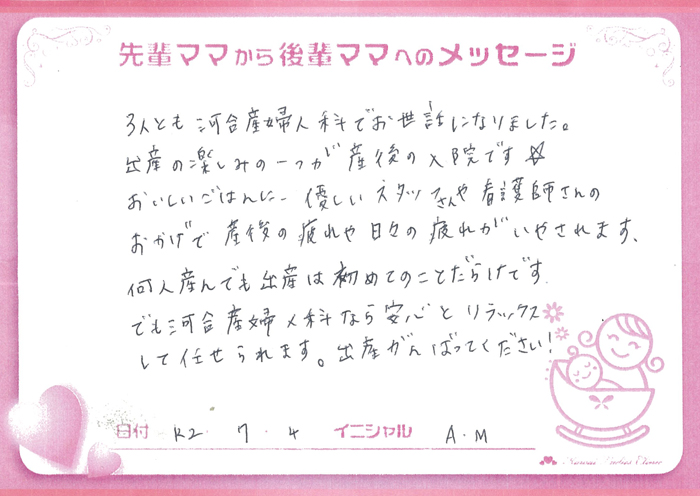 先輩ママから後輩ママへのメッセージ
3人とも河合産婦人科でお世話になりました。
出産の楽しみの一つが産後の入院です☆
おいしいごはんに…優しいスタッフさんや看護師さんの
おかげで産後の疲れや日々の疲れがいやされます、
何人産んでも出産は初めてのことだらけです.
でも河合産婦人科なら安心とリラックス
して任せられます。出産がんばってください!
日付 R2・7・4 イニシャル A.M